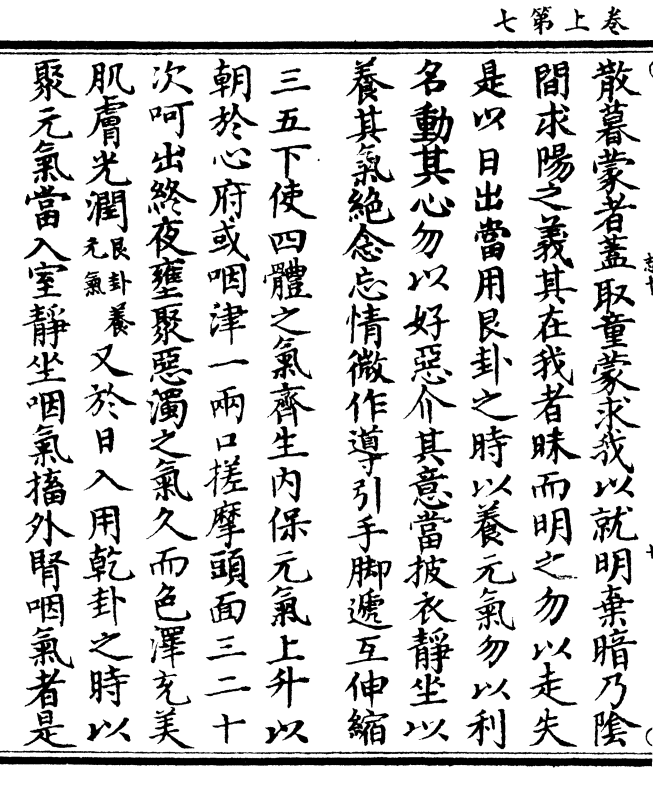 卷上第七
散暮蒙者蓋取童蒙求我以就明棄暗乃陰
間求陽之義其在我者昧而明之勿以走失
是以日出當用艮卦之時以養元氣勿以利
名動其心勿以好惡介其意當披衣靜坐以
養其氣絕念忘情微作導引手脚遞互伸縮
三五下使四體之氣齊生內保元氣上升以
朝於心府或咽津一兩口搓摩頭面三二十
次呵出終夜壅聚惡濁之氣久而色澤充美
肌膚光潤艮卦養元氣又於日入用乾卦之時以
聚元氣當入室靜坐咽氣搐外腎咽氣者是